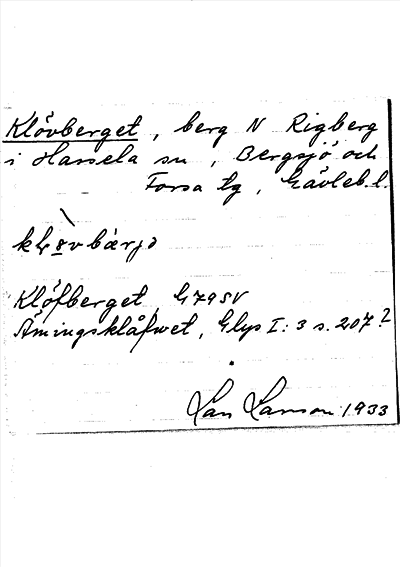 Klövberget, berg N Rigberg
i Hassela sn, Bergsjö och
Forsa tg, Gävleb. l.
Klöfberget, G79SV
Ämingsklåfwet, Glys I: 3 s. 207?
Lars Larsson 1933